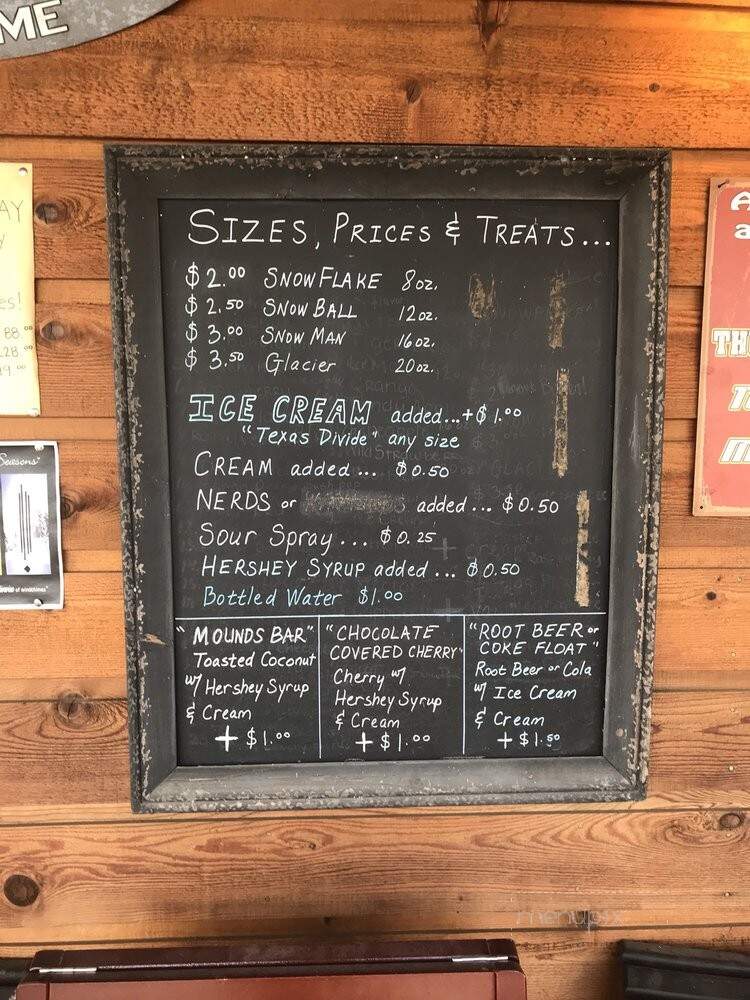 ME
SIZES, PRICES & TREATS...
$2.00 SNOWFLAKE 8oz.
$2.50 SNOW BALL 12oz.
$3.00 SNOW MAN 16oz.
$3.50 Glacier 20oz.
ICE CREAM added...+$1.00
"Texas Divide" any size
CREAM added... $0.50
NERDS or added... $0.50
Sour Spray... $0.25
HERSHEY SYRUP added... $0.50
Bottled Water $1.00
"MOUNDS BAR"
Toasted Coconut
w/ Hershey Syrup
& Cream
+ $1.00
"CHOCOLATE
COVERED CHERRY"
Cherry w/
Hershey Syrup
& Cream
+ $1.00
"ROOT BEER or
COKE FLOAT"
Root Beer or Cola
w/ Ice Cream
& Cream
+ $1.50
Seasons"
menupix